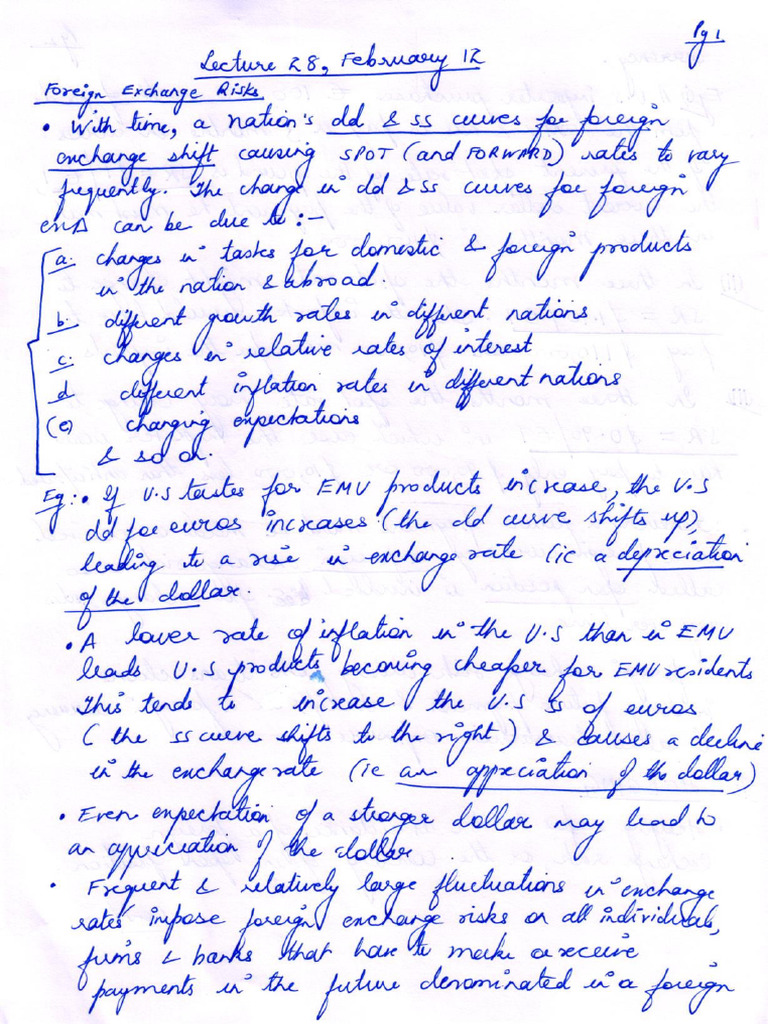 Pg 1
Lecture 28, February 12
Foreign Exchange Risks
• With time, a nation's dd & ss curves for foreign
exchange shift causing SPOT (and FORWARD) rates to vary
frequently. The change in dd & ss curves for foreign
exΔ can be due to :-
a. changes in tasks for domestic & foreign products
in the nation & abroad.
b. different growth rates in different nations
c. changes in relative rates of interest
d different inflation rates in different nations
(e) changing expectations
& so on.
Eg: • If U.S tastes for EMU products increase, the U.S
dd for euros increases (the dd curve shifts up),
leading to a rise in exchange rate (ie a depreciation
of the dollar.
• A lower rate of inflation in the U.S than in EMU
leads U.S products becoming cheaper for EMU residents
This tends to increase the U.S ss of euros
(the ss curve shifts to the right) & causes a decline
in the exchange rate (ie an appreciation of the dollar)
• Even expectation of a stronger dollar may lead to
an appreciation of the dollar.
• Frequent & relatively large fluctuations in exchange
rates impose foreign exchange risks on all individuals,
firms & banks that have to make or receive
payments in the future denominated in a foreign